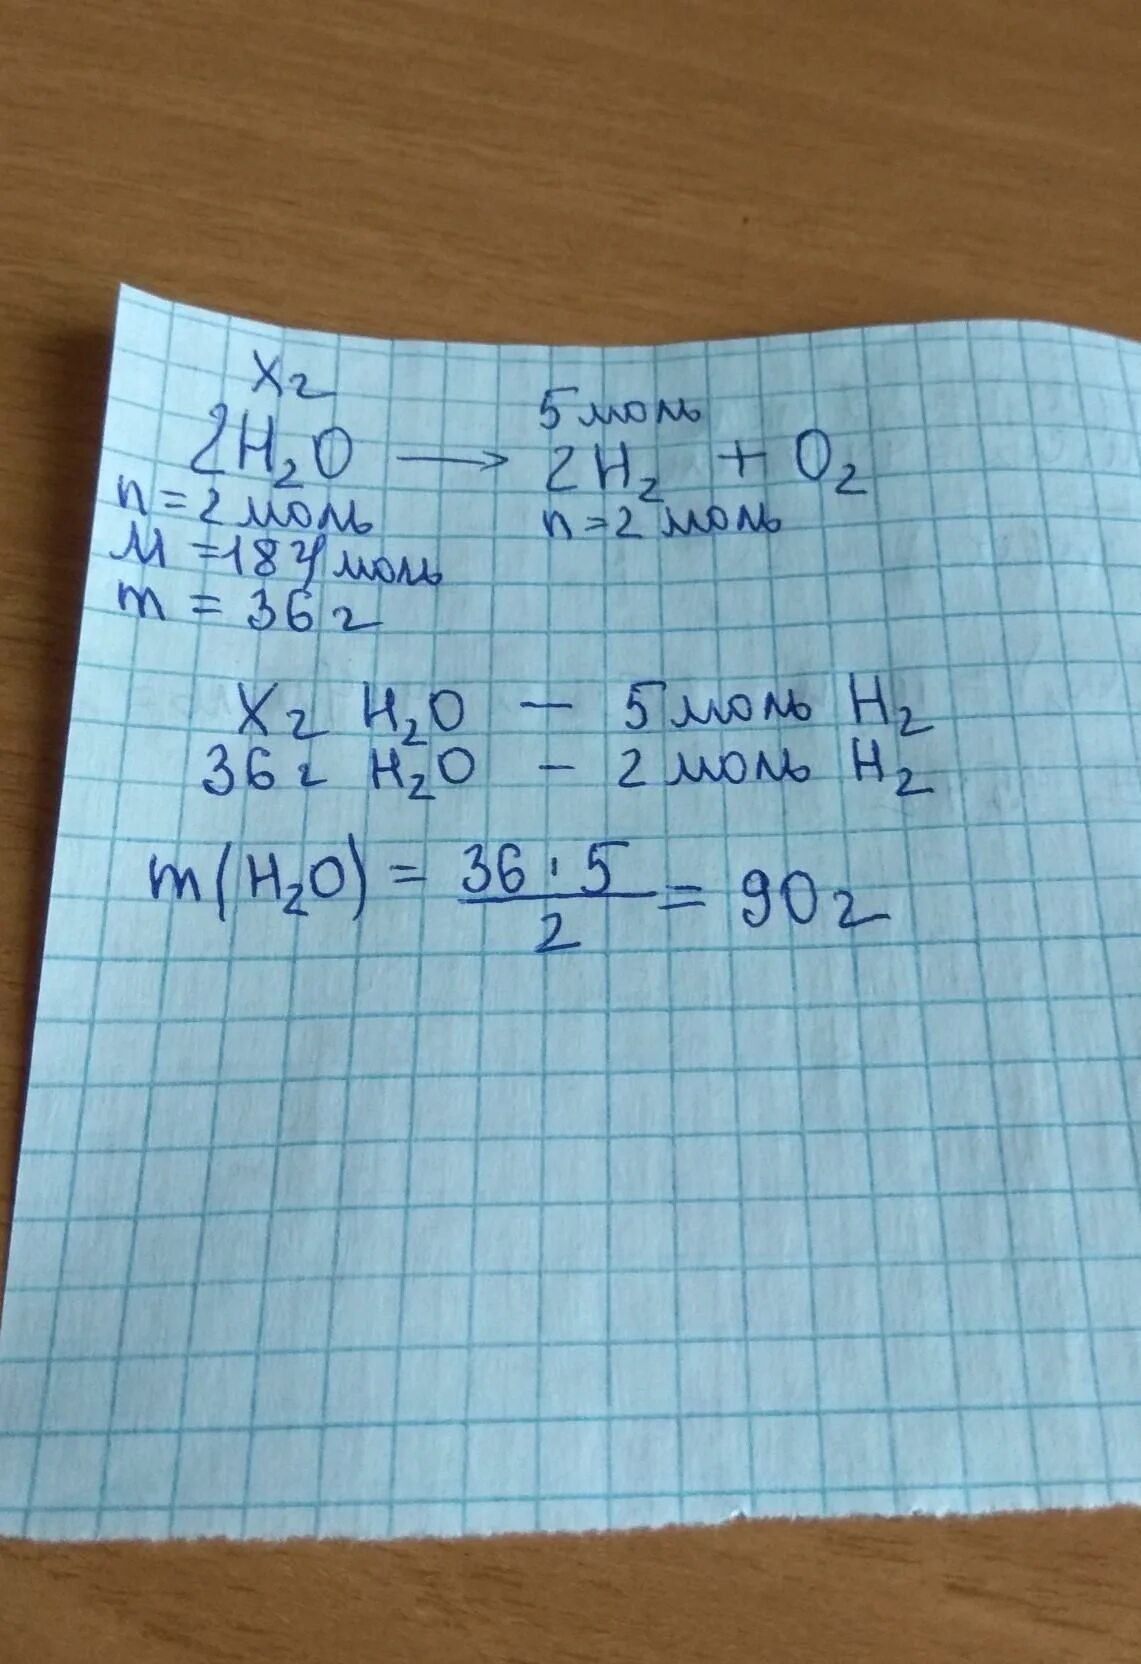 x г 5 моль
2H₂O → 2H₂ + O₂
n = 2 моль n = 2 моль
M = 18 г/моль
m = 36 г
x г H₂O – 5 моль H₂
36 г H₂O – 2 моль H₂
m(H₂O) = 36 · 5 / 2 = 90 г